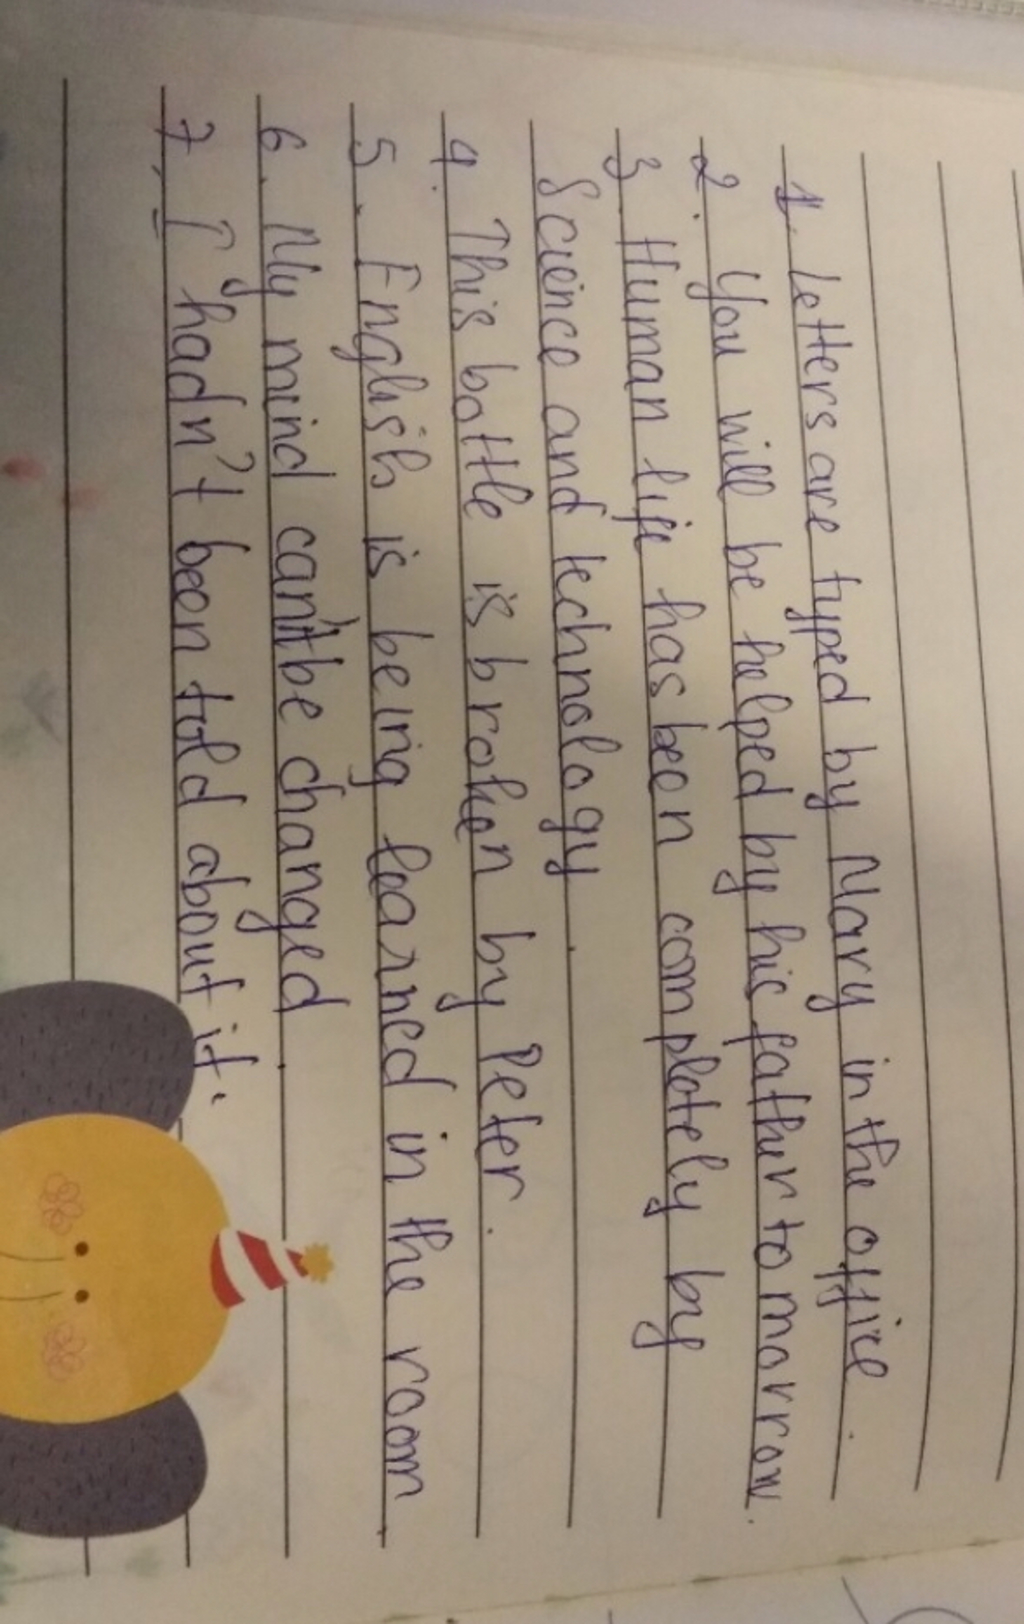 1. Letters are typed by Mary in the office.
2. You will be helped by his father tomorrow.
3. Human life has been completely by
Science and technology.
4. This bottle is broken by Peter.
5. English is being learned in the room
6. My mind can't be changed.
7. I hadn't been told about it.